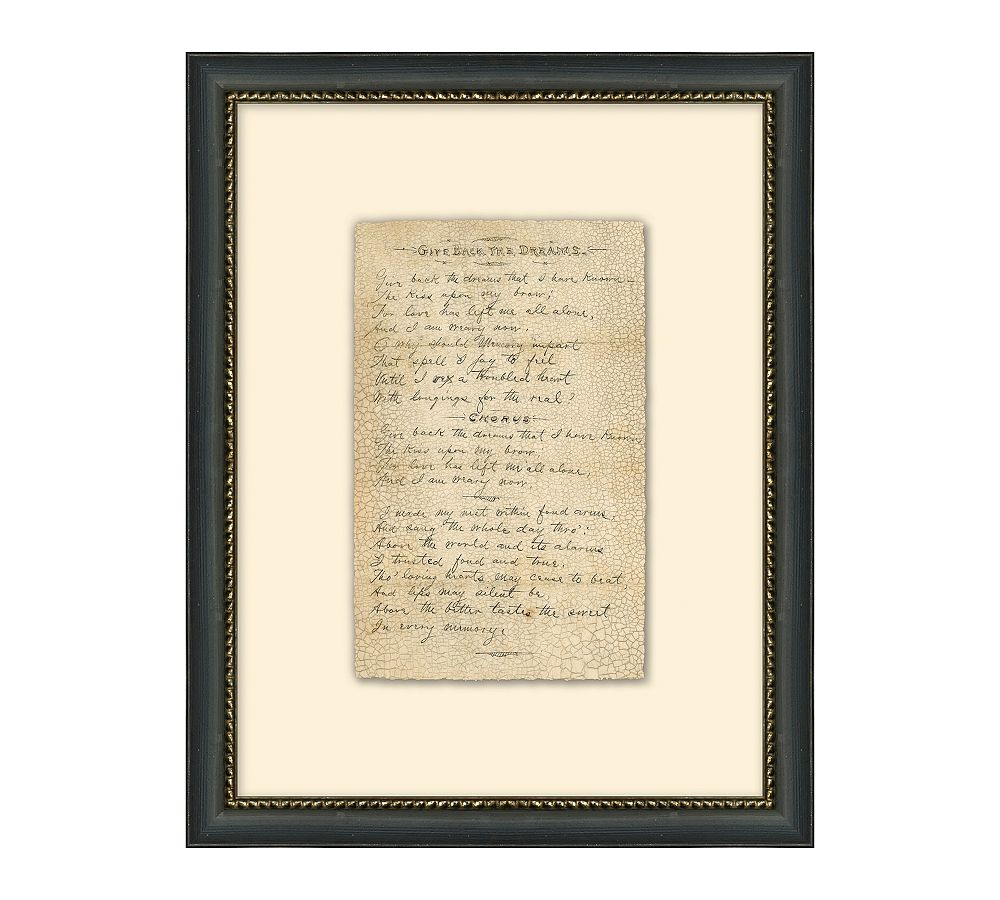 GIVE BACK THE DREAMS.
Give back the dreams that I have known—
The kiss upon my brow;
For love has left me all alone,
And I am weary now.
O why should Memory impart
That spell & joy to feel
Until I was a troubled heart
With longings for the real?
CHORUS
Give back the dreams that I have known,
The kiss upon my brow,
love has left me all alone,
And I am weary now
I made my nest within fond arms,
And sang the whole day thro':
Above the world and its alarms
I trusted fond and true,
Tho' loving hearts may cease to beat,
And lips may silent be,
Above the bitter tastes the sweet
In every memory.